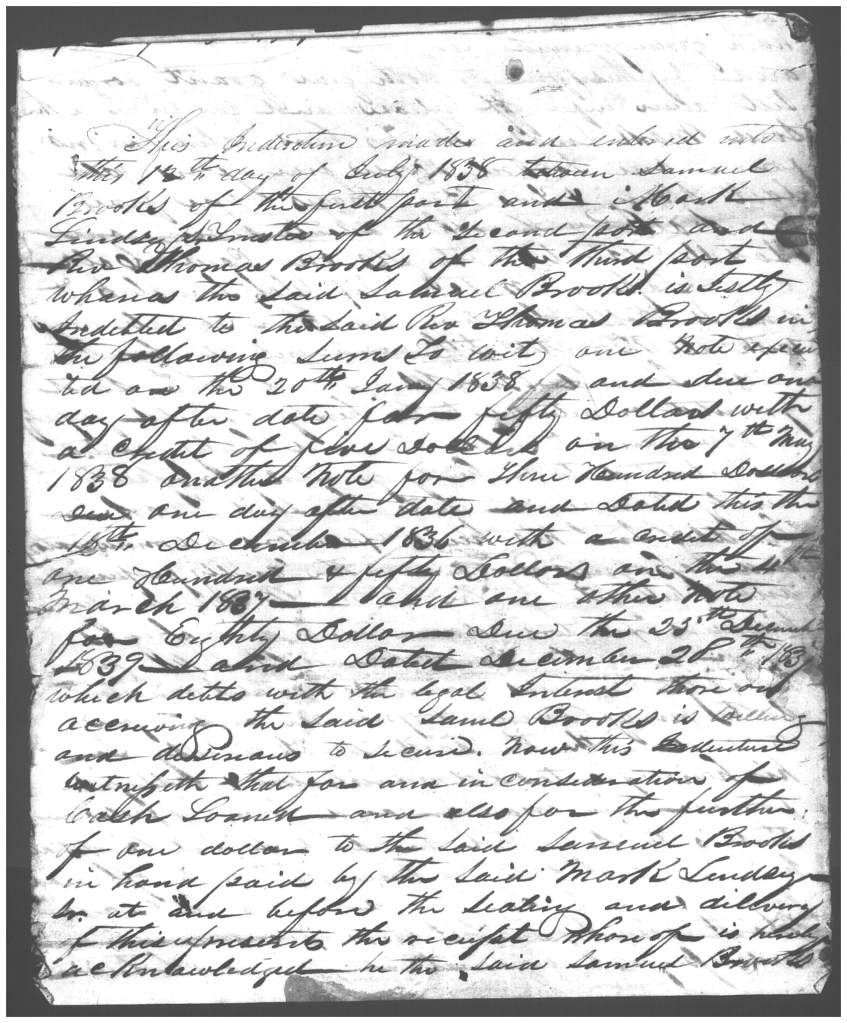 This Indenture made and entered into
this 12th day of July 1838 between Samuel
Brooks of the first part and Mark
Lindsey Trustee of the second part and
Rev Thomas Brooks of the third part
whereas the said Samuel Brooks is Justly
Indebted to the said Rev Thomas Brooks in
the following sums To wit, one Note execu
ted on the 20th Jany 1838 and due one
day after date for fifty Dollars with
a credit of five Dollars on the 7th May
1838 another Note for Three Hundred Dollars
Due one day after date and Dated this the
18th December 1836 with a credit of
one Hundred & fifty Dollars on the 4th
March 1837 and one other Note
for Eighty Dollar Due the 25th Decemb
1839 and Dated December 28th 183
which debts with the legal Interest there on
accrewing the said Saml Brooks is willing
and desirous to secure. Now this Indenture
witnesseth that for and in consideration of
Cash Loaned and also for the further
of one dollar to the said Samuel Brooks
in hand paid by the said Mark Lindsey
Sr at and before the sealing and dilivery
of this presents the receipt whereof is hereby
acknowledged he the said Samuel Brooks